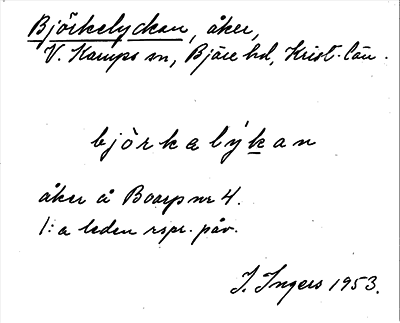 Björkelyckan, åker,
V. Karups sn, Bjäre hd, Krist. län.
björkalýkan
åker å Boarp nr 4.
1:a leden rspr. påv.
I. Ingers 1953.